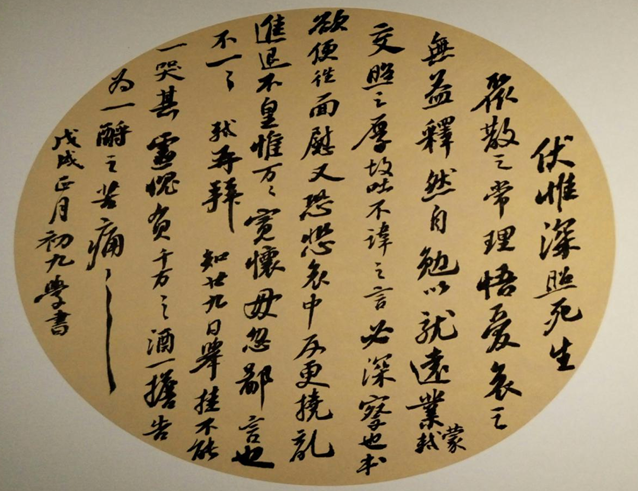 伏惟深照死生
聚散之常理悟憂哀之
無益釋然自勉以就遠業軾蒙
交照之厚故吐不諱之言必深察也本
欲便往面慰又恐悲哀中反更撓亂
進退不皇惟万〻寬懷毋忽鄙言也
不一〻 軾再拜 知廿九日舉挂不能
一哭其靈愧負千万〻酒一擔告
為一酹之苦痛〻
戊戌正月初九學書